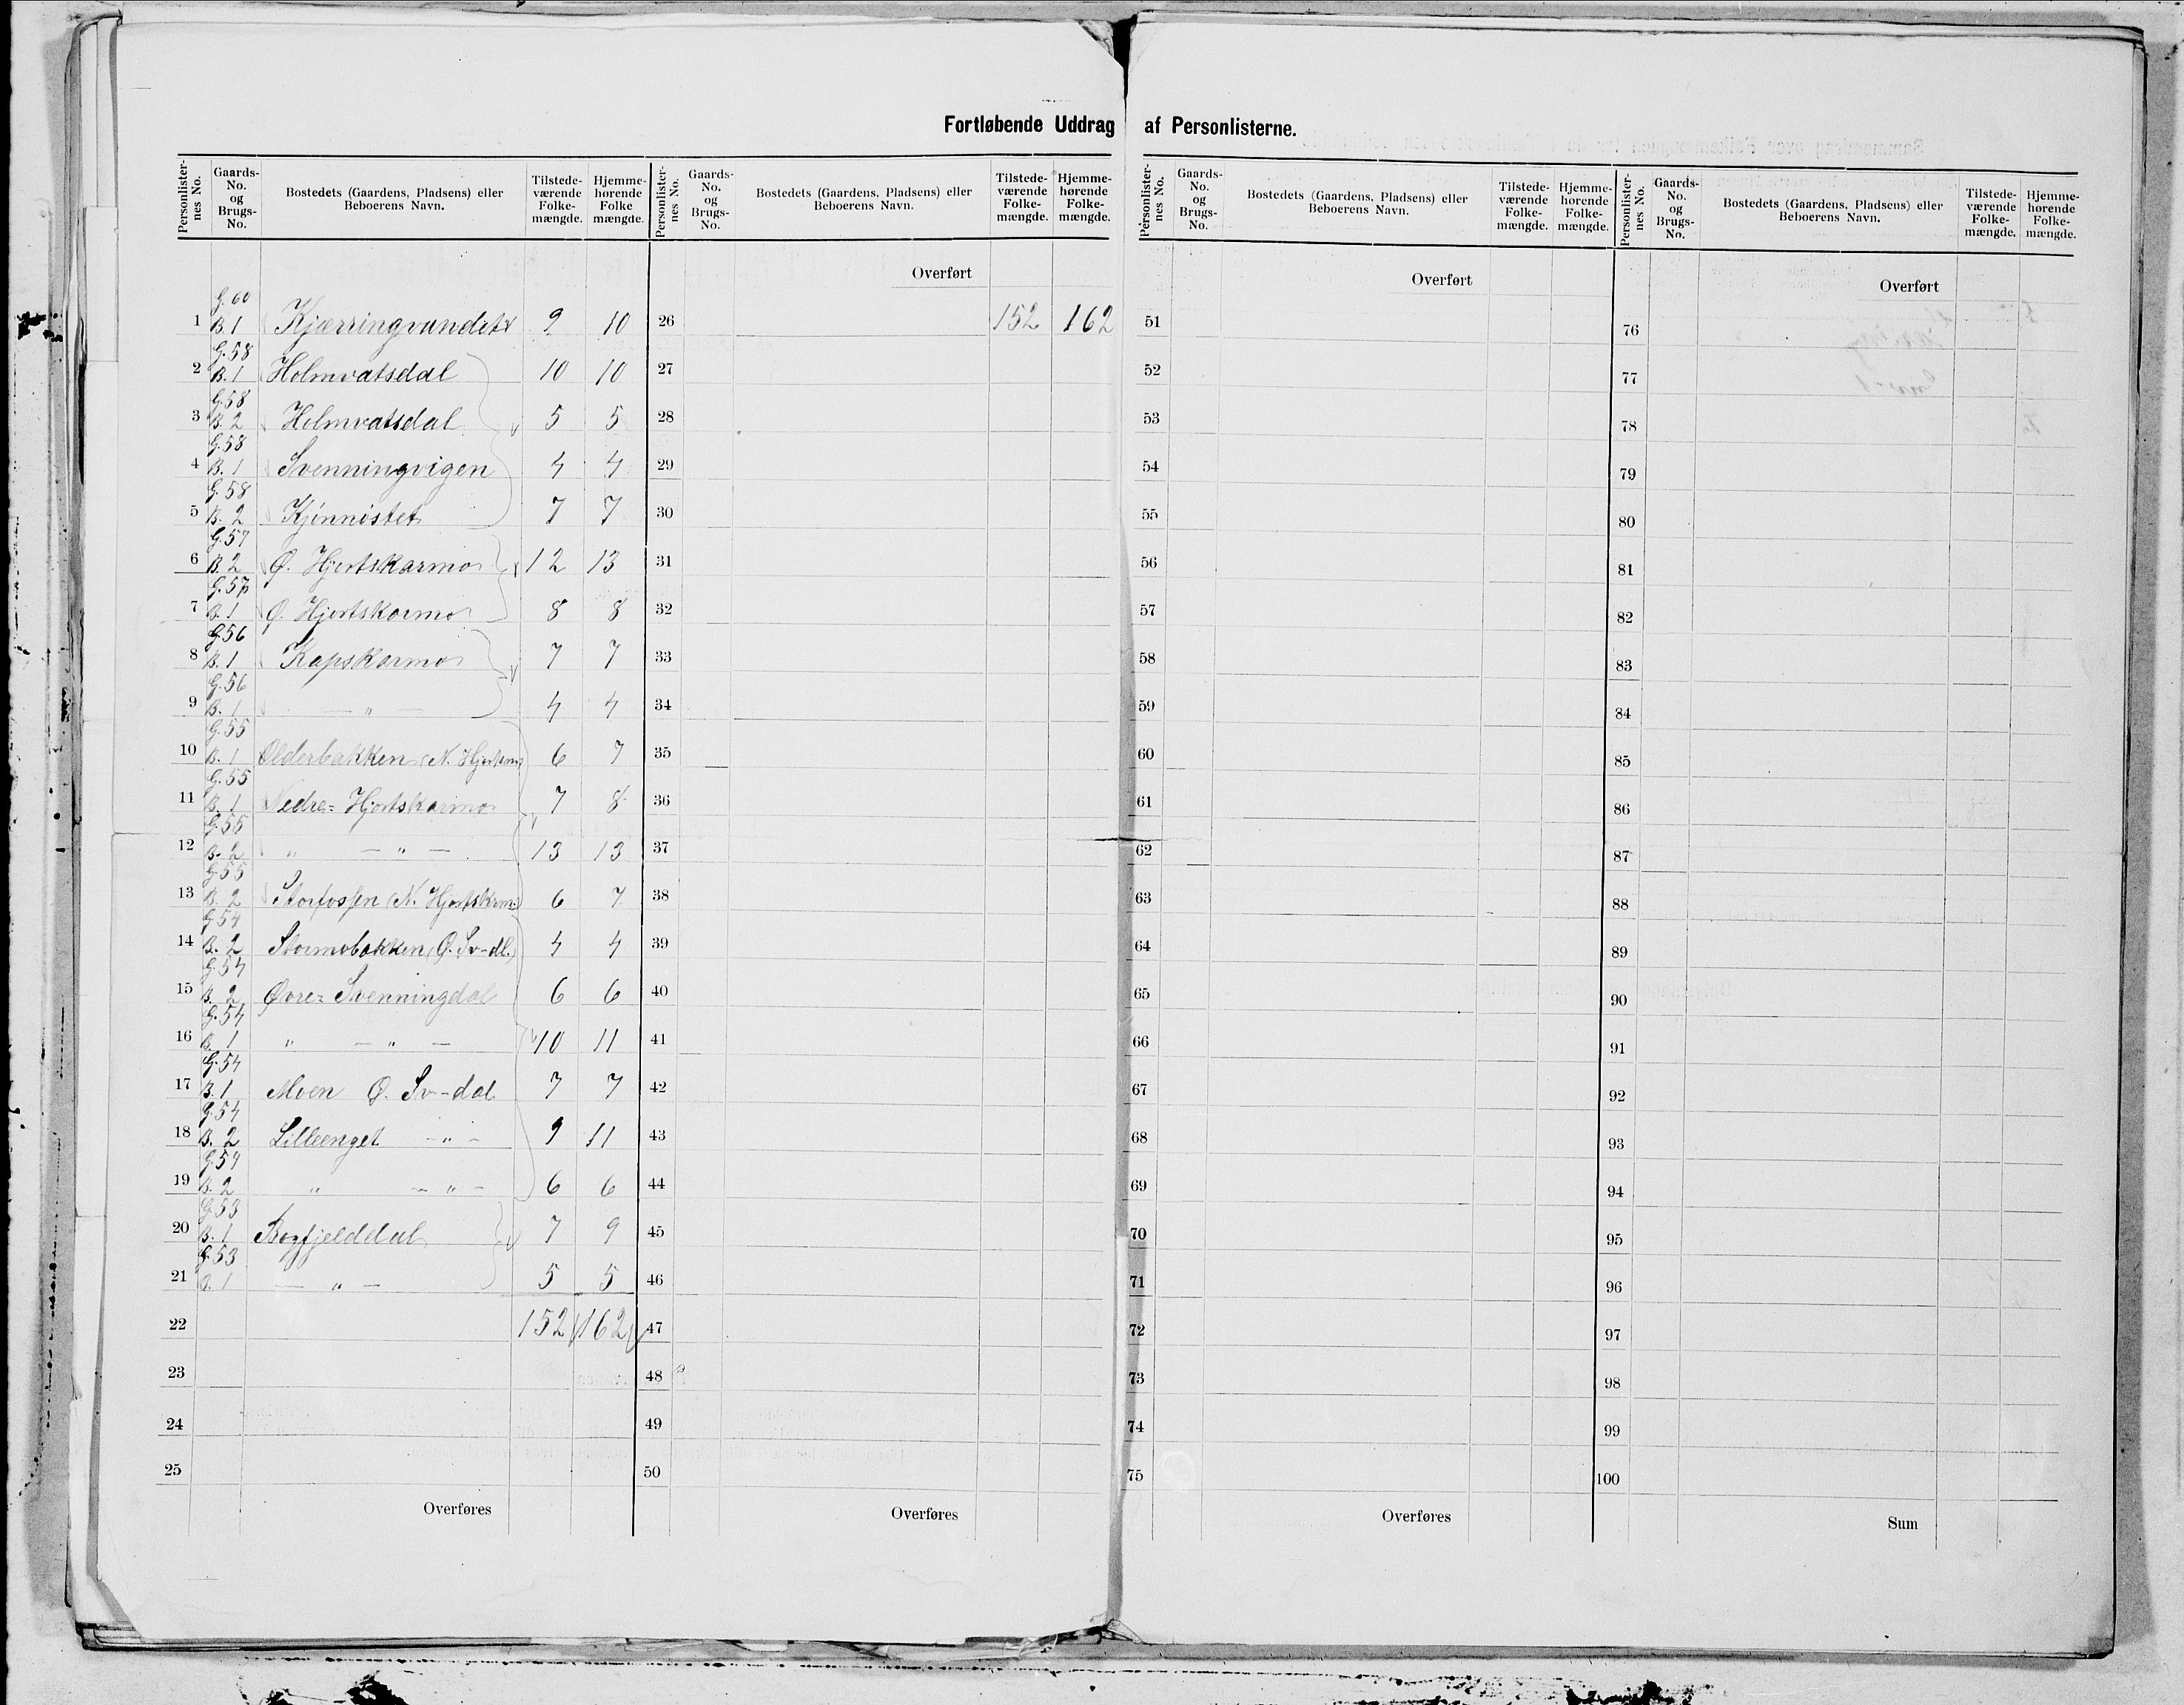 Fortløbende Uddrag af Personlisterne.
Personlister-nes No. Gaards-No. og Brugs-No. Bostedets (Gaardens, Pladsens) eller Beboerens Navn. Tilstede-værende Folke-mængde. Hjemme-hørende Folke mængde.
Personlister-nes No. Gaards-No. og Brugs-No. Bostedets (Gaardens, Pladsens) eller Beboerens Navn. Tilstede-værende Folke-mængde. Hjemme-hørende Folke-mængde.
Personlister-nes No. Gaards-No. og Brugs-No. Bostedets (Gaardens, Pladsens) eller Beboerens Navn. Tilstede-værende Folke-mængde. Hjemme-hørende Folke-mængde.
Personlister-nes No. Gaards-No. og Brugs-No. Bostedets (Gaardens, Pladsens) eller Beboerens Navn. Tilstede-værende Folke-mængde. Hjemme-hørende Folke-mængde.
Overført Overført Overført
G. 60
1 B 1 Kjærringvandet 9 10 26 152 162 51 76
G. 58
2 B. 1 Holmvatsdal 10 10 27 52 77
G. 58
3 B. 2 Holmvatsdal 5 5 28 53 78
G. 58
4 B. 1 Svenningvigen 4 4 29 54 79
G. 58
5 B. 2 Kjønnistet 7 7 30 55 80
G. 57
6 B. 2 Ø. Hjortskarmo 12 13 31 56 81
G. 57
7 B. 1 Ø. Hjortskarmo 8 8 32 57 82
G. 56
8 B. 1 Kapskarmo 7 7 33 58 83
G. 56
9 B. 1 — " — 4 4 34 59 84
G. 55
10 B. 1 Olderbakken (N. Hjortskrmo) 6 7 35 60 85
G. 55
11 B. 1 Nedre= Hjortskarmo 7 8 36 61 86
G. 55
12 B. 2 " — " — 13 13 37 62 87
G. 55
13 B. 2 Storfossen (N. Hjortskrm:) 6 7 38 63 88
G. 54
14 B. 2 Stormobakken (Ø. Sv-dl.) 4 4 39 64 89
G. 54
15 B. 2 Øvre= Svenningdal 6 6 40 65 90
G. 54
16 B. 1 " — " — 10 11 41 66 91
G. 54
17 B. 1 Moen Ø. Sv-dal 7 7 42 67 92
G. 54
18 B. 2 Lilleenget — " — 9 11 43 68 93
G. 54
19 B. 2 " — " — 6 6 44 69 94
G. 53
20 B. 1 Bogfjelddal 7 9 45 70 95
G. 53
21 B. 1 — " — 5 5 46 71 96
22 152 162 47 72 97
23 48 73 98
24 49 74 99
25 50 75 100
Overføres Overføres Overføres Sum